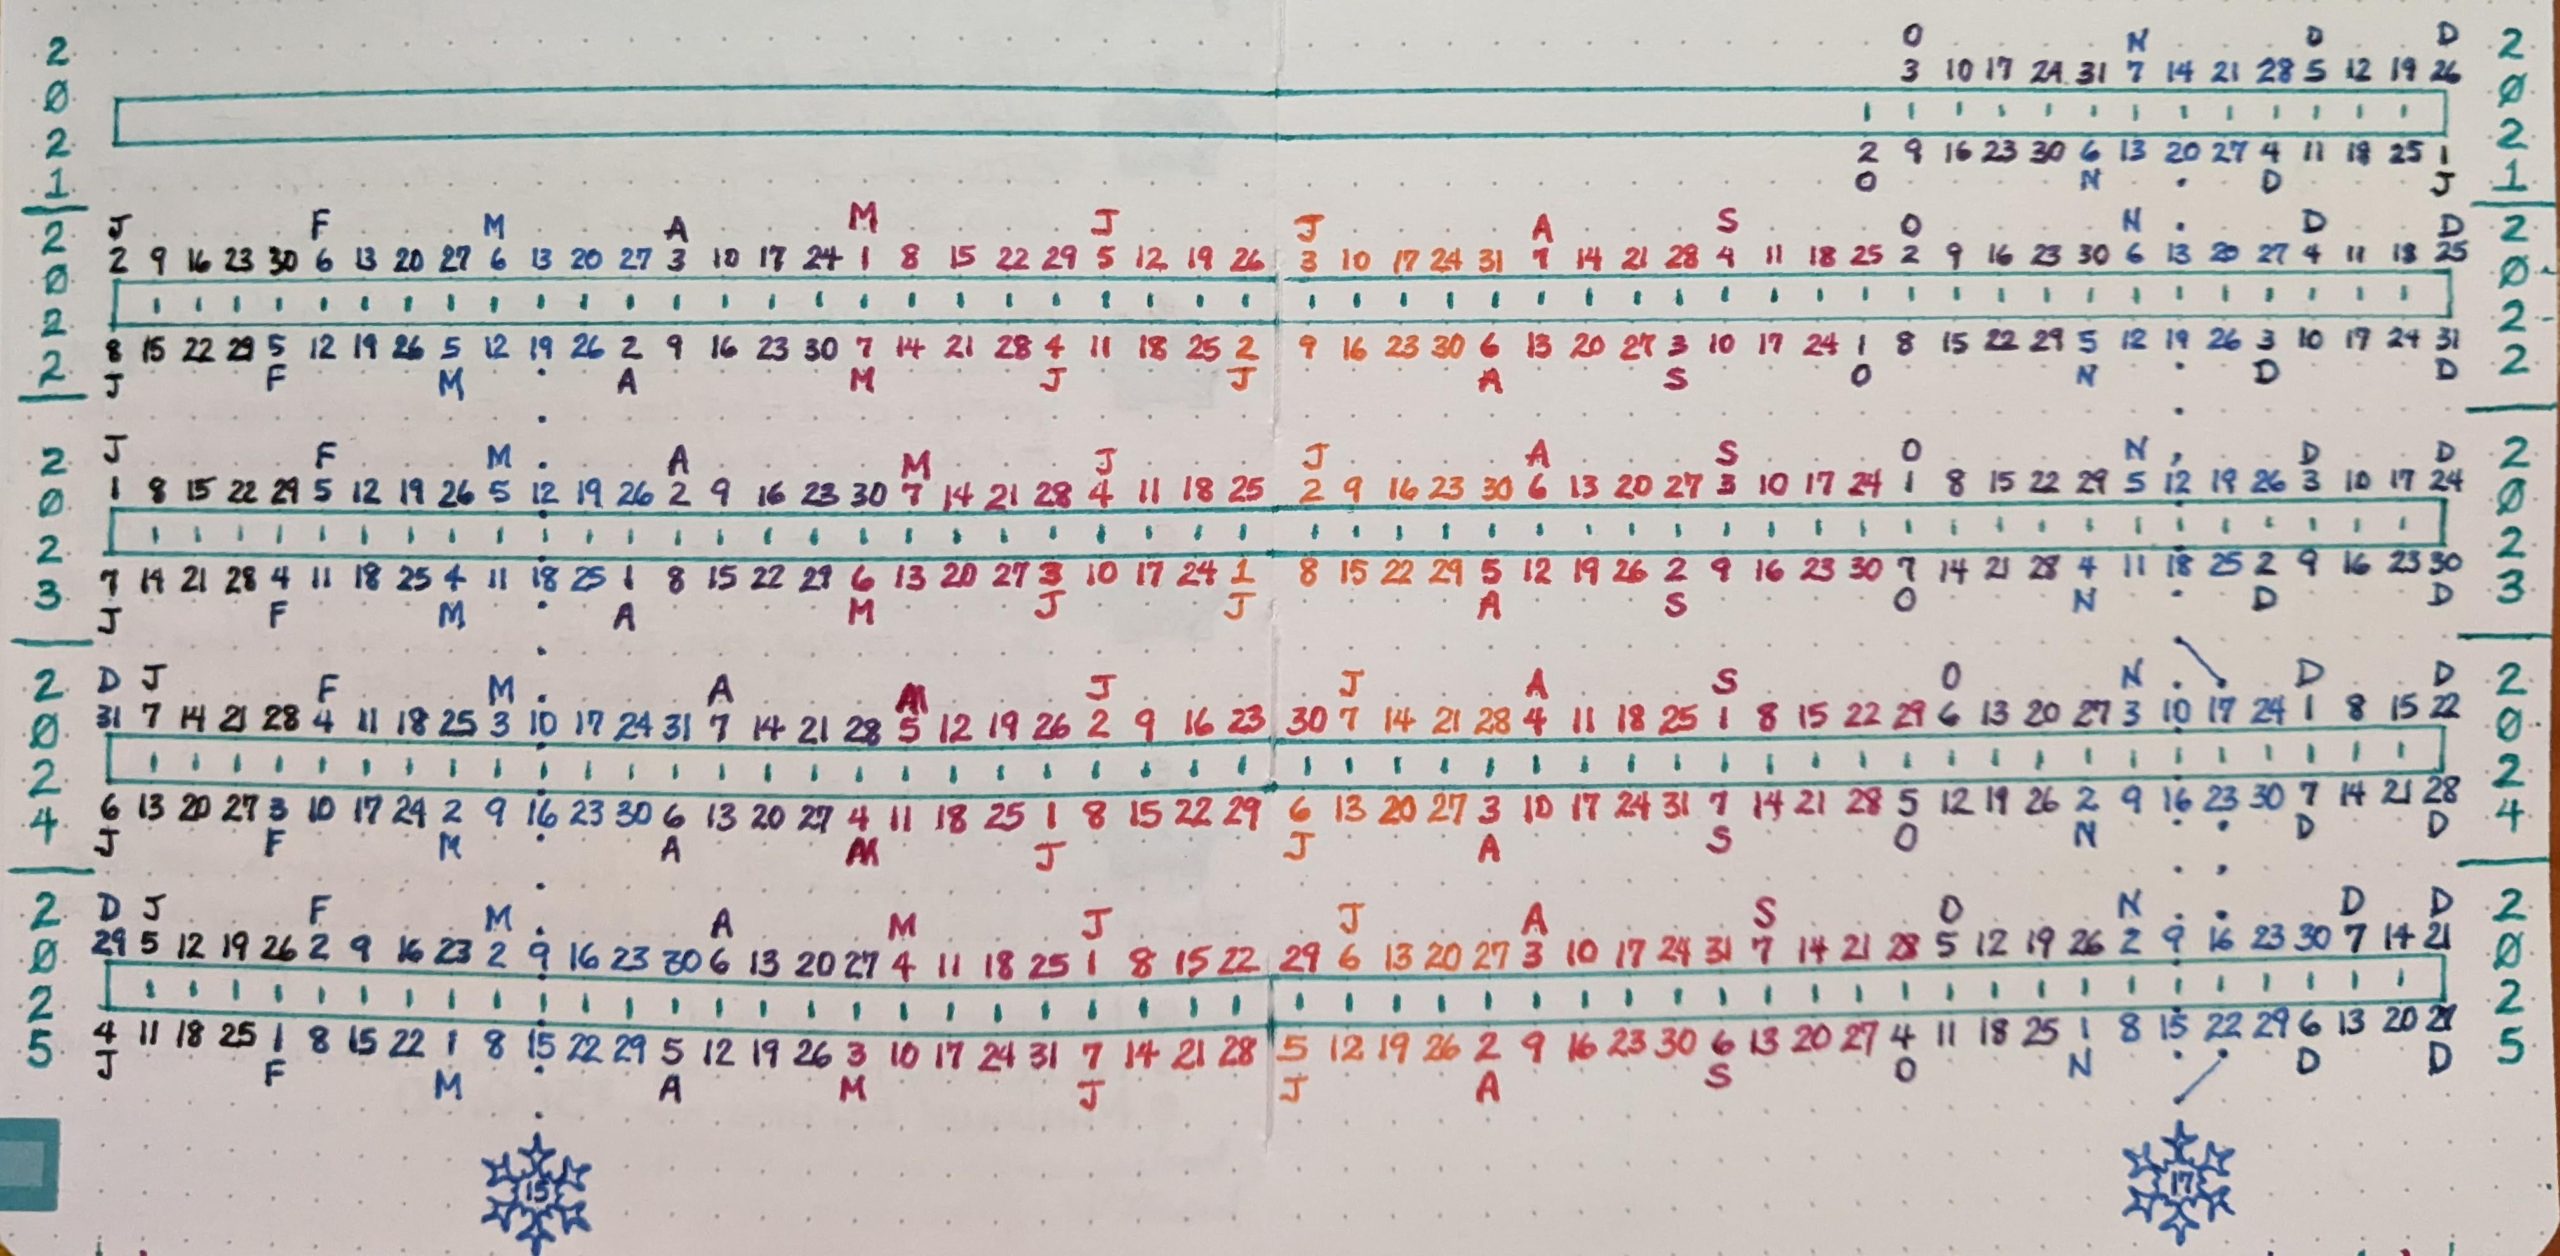 2Ø21
O N D D
3 10 17 24 31 7 14 21 28 5 12 19 26
2 9 16 23 30 6 13 20 27 4 11 18 25 1
O N D J
2Ø21
2Ø22
J F M A M J J A S O N D D
2 9 16 23 30 6 13 20 27 6 13 20 27 3 10 17 24 1 8 15 22 29 5 12 19 26 3 10 17 24 31 7 14 21 28 4 11 18 25 2 9 16 23 30 6 13 20 27 4 11 18 25
8 15 22 29 5 12 19 26 5 12 19 26 2 9 16 23 30 7 14 21 28 4 11 18 25 2 9 16 23 30 6 13 20 27 3 10 17 24 1 8 15 22 29 5 12 19 26 3 10 17 24 31
J F M A M J J A S O N D D
2Ø22
2Ø23
J F M A M J J A S O N D D
1 8 15 22 29 5 12 19 26 5 12 19 26 2 9 16 23 30 7 14 21 28 4 11 18 25 2 9 16 23 30 6 13 20 27 3 10 17 24 1 8 15 22 29 5 12 19 26 3 10 17 24
7 14 21 28 4 11 18 25 4 11 18 25 1 8 15 22 29 6 13 20 27 3 10 17 24 1 8 15 22 29 5 12 19 26 2 9 16 23 30 7 14 21 28 4 11 18 25 2 9 16 23 30
J F M A M J J A S O N D D
2Ø23
2Ø24
D J F M A M J J A S O N D D
31 7 14 21 28 4 11 18 25 3 10 17 24 31 7 14 21 28 5 12 19 26 2 9 16 23 30 7 14 21 28 4 11 18 25 1 8 15 22 29 6 13 20 27 3 10 17 24 1 8 15 22
6 13 20 27 3 10 17 24 2 9 16 23 30 6 13 20 27 4 11 18 25 1 8 15 22 29 6 13 20 27 3 10 17 24 31 7 14 21 28 5 12 19 26 2 9 16 23 30 7 14 21 28
J F M A M J J A S O N D D
2Ø24
2Ø25
D J F M A M J J A S O N D D
29 5 12 19 26 2 9 16 23 2 9 16 23 30 6 13 20 27 4 11 18 25 1 8 15 22 29 6 13 20 27 3 10 17 24 31 7 14 21 28 5 12 19 26 2 9 16 23 30 7 14 21
4 11 18 25 1 8 15 22 1 8 15 22 29 5 12 19 26 3 10 17 24 31 7 14 21 28 5 12 19 26 2 9 16 23 30 6 13 20 27 4 11 18 25 1 8 15 22 29 6 13 20 27
J F M A M J J A S O N D D
2Ø25
15 17